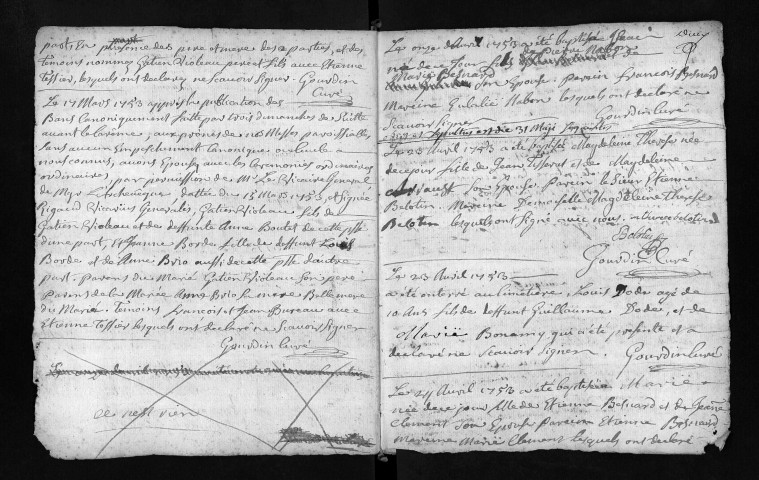 part, en presence des pere et mere des parties, et des
temoins nommez Gatien Violeau pere et fils avec Etienne
Tessier, lesquels ont declarez ne Scavoir Signer. Gourdin
Curé
Le 17 Mars 1753 apprés la publication des
Bans Canoniquement faitte par trois dimanches de Suitte
avant le carême, aux prônes de nos Messes paroissialles,
Sans aucun Empeschement Canonique ou Civil a
nous connus, avons Epousez avec les Ceremonies ordinaires
ordinaires, par permission de Mr Le Vicaire General
de Mgr L'archevêque dattée du 13 Mars 1753, et Signée
Rigaud Vicaires Generales, Gatien Violeau fils de
Gatien Violeau et de deffunte Anne Boutet de cette psse
d'une part, Et Jeanne Borde fille de deffunt Louis
Borde et de Anne Brio aussi de cette psse d'autre
part. parens du Marié Gatien Violeau Son pere
Parens de la Mariée Anne Brio Sa mere Bellemere
du Marié. temoins François et Jean Bureau avec
Etienne Tessier lesquels ont declaré ne Scavoir Signer
Gourdin Curé
ce n'est rien
Le onze d'Avril 1753 a été baptisé Jean
né de ce jour fils de Pierre Nabon
Marie Besnard Son Epouse. parein François Besnard
Mareine Eulalie Nabon lesquels ont declaré ne
Scavoir Signer Gourdin Curé
Le 23 Avril 1753 a été baptisée Magdeleine Therese née
de ce jour fille de Jean et de Magdeleine
Son Epouse Parein le Sieur Etienne
Belotin Mareine Demoiselle Magdeleine Therese
Belotin lesquels ont Signé avec nous.
Gourdin Curé
Le 23 Avril 1753
a été enterré au Cimetiere, Louis Dode agé de
10 ans fils de deffunt Guillaume Dode, et de
Marie Bonamy qui a été présente et a
declaré ne Scavoir Signer. Gourdin Curé
Le 24 Avril 1753 a été baptisée Marie
née de ce jour fille de Etienne Besnard et de Jeanne
Clement Son Epouse Parein Etienne Besnard
Mareine Marie Clement lesquels ont declaré